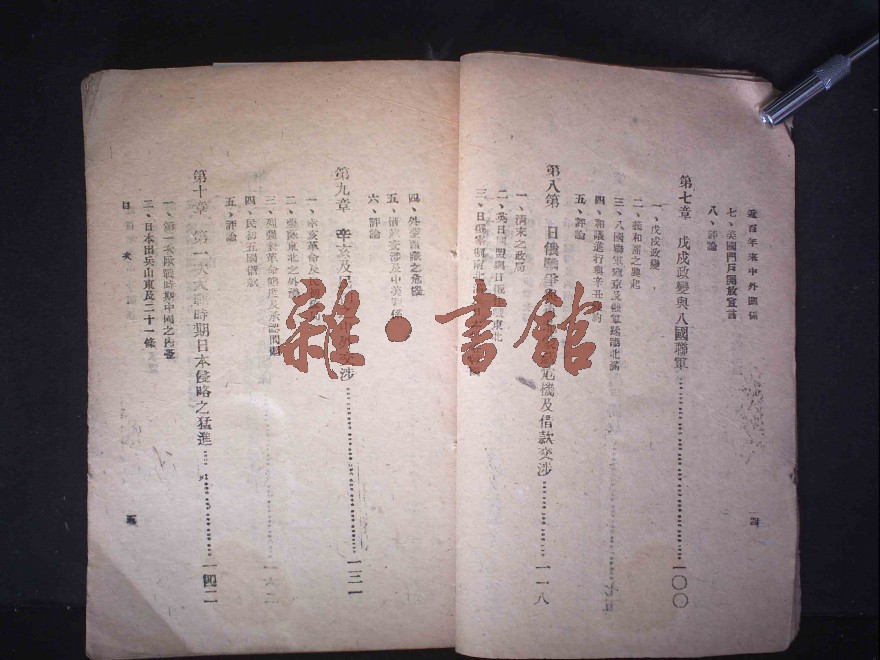 近百年來中外關係
四
七、美國門戶開放宣言
八、評論
第七章 戊戌政變與八國聯軍…………一〇〇
一、戊戌政變
二、義和團之興起
三、八國聯軍寇京及俄軍蹂躪北滿
四、和議進行與辛丑
五、評論
第八第 日俄戰爭與 危機及借款交涉…………一一八
一、清末之政局
二、英日同盟與日俄 東北
三、日俄
四、外蒙西藏之危機
五、借款交涉及中英
六、評論
第九章 辛亥及民 外交涉…………一三一
一、辛亥革命及民初
二、東北之外
三、列強對革命態度及承認問題
四、民初五國借款
五、評論
第十章 第一次大戰時期日本侵略之猛進…………一四二
一、第一次歐戰時期中國之內憂
二、日本出兵山東及二十一條
目次
五
雜·書館